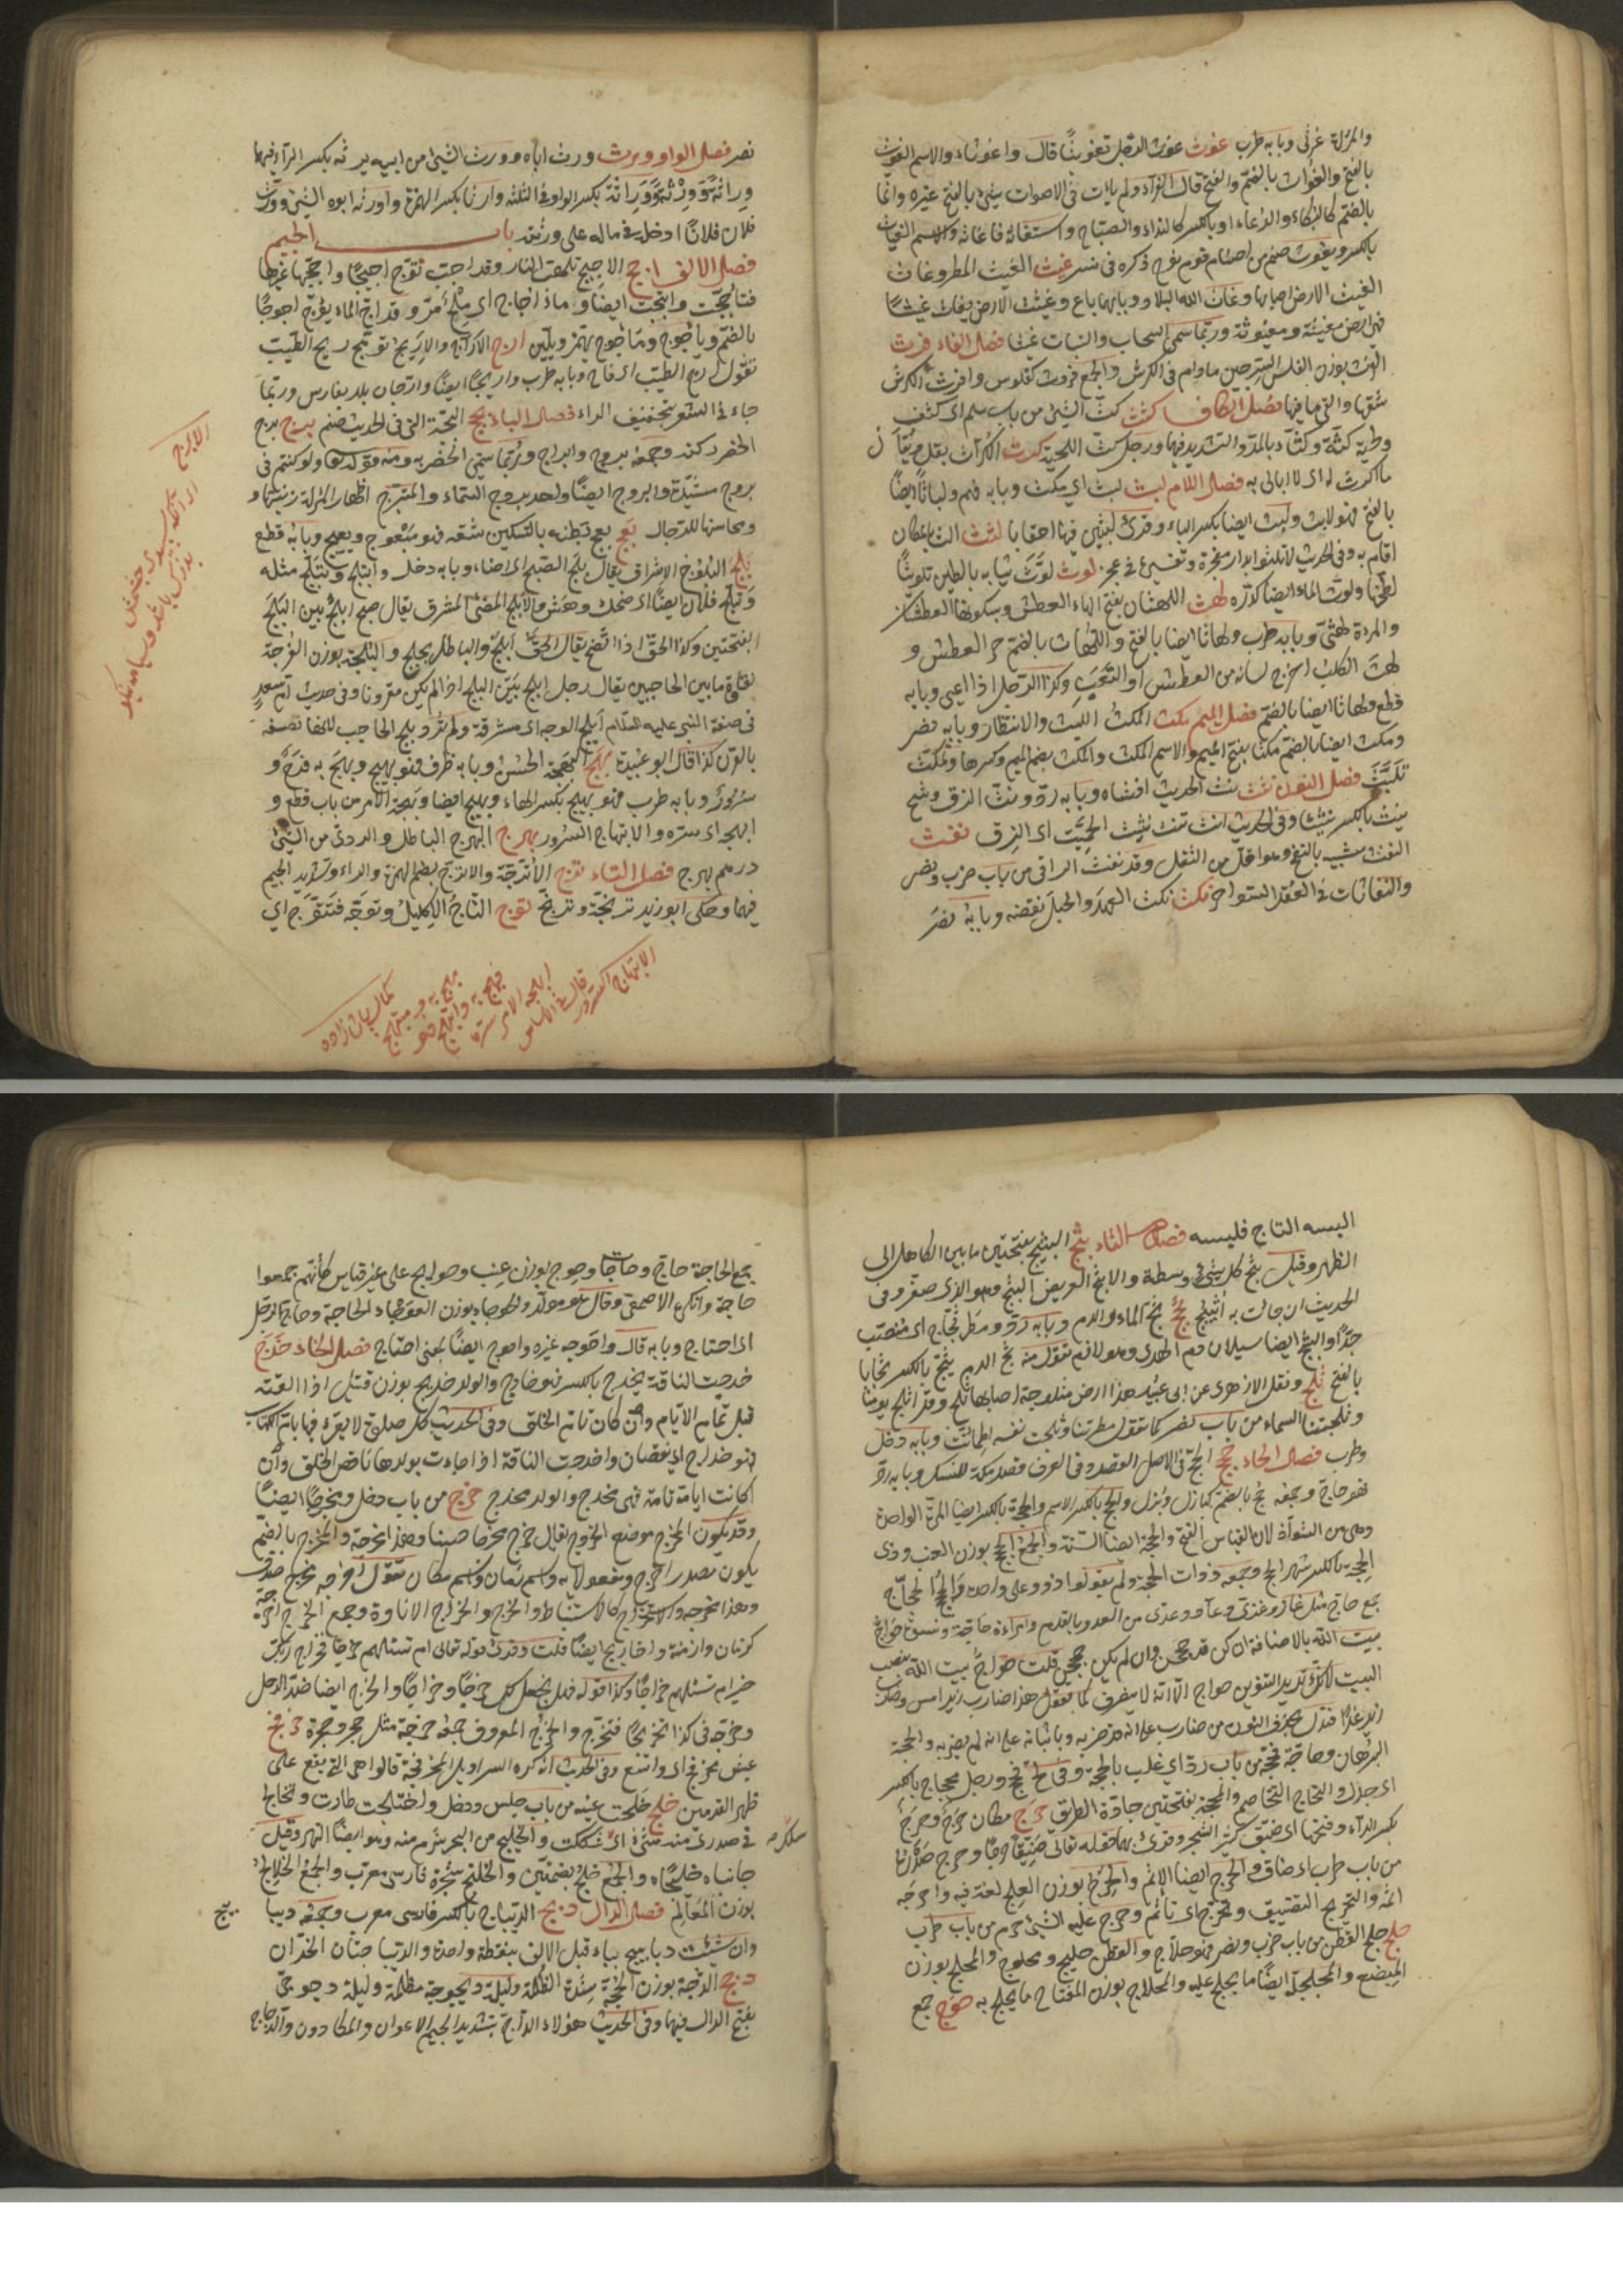 والمرأة غرثى وبابه طرب غوث غوث الرجل تغويثا قال واغوثاه والاسم الغوث
بالفتح والغواث بالضم والفتح قال الفراء ولم يأت في الاصوات شيئ بالفتح غيره وانما
بالضم كالبكاء والدعاء او بالكسر كالنداء والصياح واستغاثه فاغاثه والاسم الغياث
بالكسر ويغوث صنم من اصنام قوم نوح ذكره في نسر غيث الغيث المطر وغاث
الغيث الارض اصابها وغاث الله البلاد وبابهما باع وغيثت الارض تغاث غيثا
فهي ارض مغيثة ومغيوثة وربما سمى السحاب والنبات غيثا فصل الفاء فرث
الفرث بوزن الفلس السرجين مادام في الكرش والجمع فروث كفلوس وافرث الكرش
شقها والقى ما فيها فصل الكاف كثث كث الشئ من باب سلم اى كثف
ولحية كثة وكثاء بالمد والتشديد فيهما ورجل كث اللحية كرث الكراث بقل ويقال
ما اكترث له اى لا ابالى به فصل اللام لبث لبث اى مكث وبابه فهم ولباثا ايضا
بالفتح فهو لابث ولبث ايضا بكسر الباء وقرئ لبثين فيها احقابا لثث الث بالمكان
اقام به وفى الحديث لا تلثوا بدار معجزة وتفسيره في عجز لوث لوث ثيابه بالطين تلويثا
لطخها ولوث الماء ايضا كدره لهث اللهثان بفتح الهاء العطش وبسكونها العطشان
والمرءة لهثى وبابه طرب ولهاثا ايضا بالفتح واللهاث بالضم حر العطش و
لهث الكلب اخرج لسانه من العطش او التعب وكذا الرجل اذا اعيى وبابه
قطع ولهاثا ايضا بالضم فصل الميم مكث المكث اللبث والانتظار وبابه نصر
ومكث ايضا بالضم مكثا بفتح الميم والاسم المكث والمكث بضم الميم وكسرها وتمكث
تلبث فصل النون نثث نث الحديث افشاه وبابه رد ونث الزق رشح
ينث بالكسر نثيثا وفى الحديث انت تنث نثيث الحميت اى الزق نفث
النفث شبيه بالنفخ وهو اقل من التفل وقد نفث الراقى من باب ضرب ونصر
والنفاثات في العقد السواحر نكث نكث العهد والحبل نقضه وبابه نصر
نصر فصل الواو ورث ورث اباه وورث الشئ من ابيه يرثه بكسر الراء فيهما
وراثة وورثا ووراثة بكسر الواو في الثلثة وارثا بكسر الهمزة واورثه ابوه الشئ وورث
فلان فلانا ادخله في ماله على ورثته باب الجيم
فصل الالف اجج الاجيج تلهب النار وقد اجت تؤج اجيجا واججها غيرها
فتأججت وائتجت ايضا وماء اجاج اى ملح مر وقد اج الماء يؤج اجوجا
بالضم ويأجوج ومأجوج يهمز ويلين ارج الارج والاريج توهج ريح الطيب
تقول ارج الطيب اى فاح وبابه طرب واريجا ايضا وارجان بلد بفارس وربما
جاء في الشعر بتخفيف الراء فصل الباء
بروج مشيدة والبروج ايضا واحد بروج السماء والتبرج اظهار المرأة زينتها و
ومحاسنها للرجال بعج بعج بطنه بالسكين شقه فهو مبعوج وبعيج وبابه قطع
بلج البلوج الاشراق يقال بلج الصبح اى اضاء وبابه دخل وانبلج وتبلج مثله
وتبلج فلان ايضا اى ضحك وهش والابلج المضئ المشرق يقال صبح ابلج بين البلج
بفتحتين وكذا الحق اذا اتضح يقال الحق ابلج والباطل لجلج والبلجة بوزن الفرجة
نقاوة ما بين الحاجبين يقال رجل ابلج بين البلج اذا لم يكن مقرونا وفى حديث ام معبد
في صفة النبي عليه السلام ابلج الوجه اى مشرقه ولم ترد بلج الحاجب لانها تصفه
بالقرن كذا قال ابو عبيدة بهج البهجة الحسن وبابه ظرف فهو بهيج وبهج به فرح و
سرور وبابه طرب فهو بهج بكسر الهاء وبهيج ايضا وبهجه الامر من باب قطع و
ابهجه اى سره والابتهاج السرور بهرج البهرج الباطل والردى من الشئ
درهم بهرج فصل التاء ترج الاترجة والاترج بضم الهمزة والراء وتشديد الجيم
فيهما وحكى ابو زيد ترنجة وترنج توج التاج الاكليل وتوجه فتتوج اى
الابتهاج السرور
قال في الاساس
ابهجه الامر سره
فبهج به وابتهج فهو
بهج به ومبتهج
كمال پاشا زاده
البسه التاج فلبسه فصل الثاء ثبج الثبج بفتحتين ما بين الكاهل الى
الظهر وقيل ثبج كل شئ وسطه والاثبج العريض الثبج وهو الذى صغر وفى
الحديث ان جاءت به اثيبج ثجج ثج الماء والدم وبابه رد ومطر ثجاج اى منصب
جدا والثج ايضا سيلان دم الهدى وهو لازم تقول منه ثج الدم يثج بالكسر ثجاجا
بالفتح ثلج ونقل الازهرى عن ابى عبيد هذا ارض مثلوجة اصابها ثلج وقد اثلج يومنا
وثلجتنا السماء من باب نصر كما تقول مطرتنا وثلجت نفسه اطمأنت وبابه دخل
وطرب فصل الحاء حجج الحج في الاصل القصد وفى العرف قصد مكة للنسك وبابه رد
فهو حاج وجمعه حج بالضم كبازل وبزل والحج بالكسر الاسم والحجة بالكسر ايضا المرة الواحدة
وهى من الشواذ لان القياس الفتح والحجة ايضا السنة والجمع الحجج بوزن العنب وذى
الحجة بالكسر شهر الحج وجمعه ذوات الحجة ولم يقولوا ذوو على واحده والحج الحجاج
جمع حاج مثل غاز وغزى وعاد وعدى من العدو بالقدم وامراءة حاجة ونسوة حواج
بيت الله بالاضافة ان كن قد حججن وان لم يكن حججن قلت حواج بيت الله بنصب
البيت لانك تريد التنوين في حواج الا انه لا ينصرف كما يقال هذا ضارب زيد امس وضارب
زيد غدا فتدل بحذف التنوين من ضارب على انه قد ضربه وباثباته على انه لم يضربه والحجة
البرهان وحاجه فحجه من باب رد اى غلب بالحجة وفى المثل لج فحج ورجل محجاج بالكسر
اى جدل والتحاج التخاصم والمحجة بفتحتين جادة الطريق حرج مكان حرج وحرج
بكسر الراء وفتحها اى ضيق كثير الشجر وقرئ بهما قوله تعالى ضيقا حرجا وحرج صدره
من باب طرب اى ضاق والحرج ايضا الاثم والحرج بوزن العلج لغة فيه واحرجه
اثمه والتحريج التضييق وتحرج اى تأثم وحرج عليه الشئ حرم من باب طرب
حلج حلج القطن من باب ضرب ونصر فهو حلاج والقطن حليج ومحلوج والمحلج بوزن
المبضع والمحلجة ايضا ما يحلج عليه والمحلاج بوزن المفتاح ما يحلج به حوج جمع
جمع الحاجة حاج وحاجات وحوج بوزن عنب وحوايج على غير قياس كأنهم جمعوا
حايجة وانكره الاصمعى وقال هو مولد والحوجاء بوزن العوجاء الحاجة وحاج الرجل
اى احتاج وبابه قال واحوجه غيره واحوج ايضا بمعنى احتاج فصل الخاء خدج
خدجت الناقة تخدج بالكسر فهو خادج والولد خديج بوزن قتيل اذا القته
قبل تمام الايام وان كان تام الخلق وفى الحديث كل صلوة لا يقرء فيها بام الكتاب
فهو خداج اى نقصان واخدجت الناقة اذا جاءت بولدها ناقص الخلق وان
كانت ايامه تامة فهى مخدج والولد مخدج خرج من باب دخل ومخرجا ايضا
وقد يكون المخرج موضع الخروج يقال خرج مخرجا حسنا وهذا مخرجه والمخرج بالضم
يكون مصدر اخرج ومفعولا به واسم زمان واسم مكان تقول اخرجه مخرج صدق
وهذا مخرجه والاستخراج كالاستنباط والخرج والخراج الاتاوة وجمع الخرج اخرجة
كزمان وازمنة واخاريج ايضا قلت وقرئ قوله تعالى ام تسئلهم خرجا فخراج ربك
خير ام تسئلهم خراجا وكذا قوله فهل نجعل لك خرجا وخراجا والخرج ايضا ضد الدخل
وخرجه في كذا تخريجا فتخرج والخرج المعروف جمعه خرجة مثل جحر وجحرة خرفج
عيش مخرفج اى واسع وفى الحديث انه كره السراويل المخرفجة قالوا هى التى تقع على
ظهر القدمين خلج خلجت عينه من باب جلس ودخل واختلجت طارت وتخالج
في صدرى منه شئ اى شككت والخليج من البحر شرم منه وهو ايضا النهر وقيل
جانباه خليجاه والجمع خلج بضمتين والخلنج شجرة فارسى معرب والجمع الخلانج
بوزن المعالم فصل الدال دبج الديباج بالكسر فارسى معرب وجمعه ديبا
وان شئت دبابيج بباء قبل الالف بنقطة واحدة والديباجتان الخدان
دجج الدجة بوزن الحجة شدة الظلمة وليلة ديجوجة مظلمة وليلة دجوجى
بفتح الدال فيهما وفى الحديث هؤلاء الداج بتشديد الجيم الاعوان والمكارون والدجاج